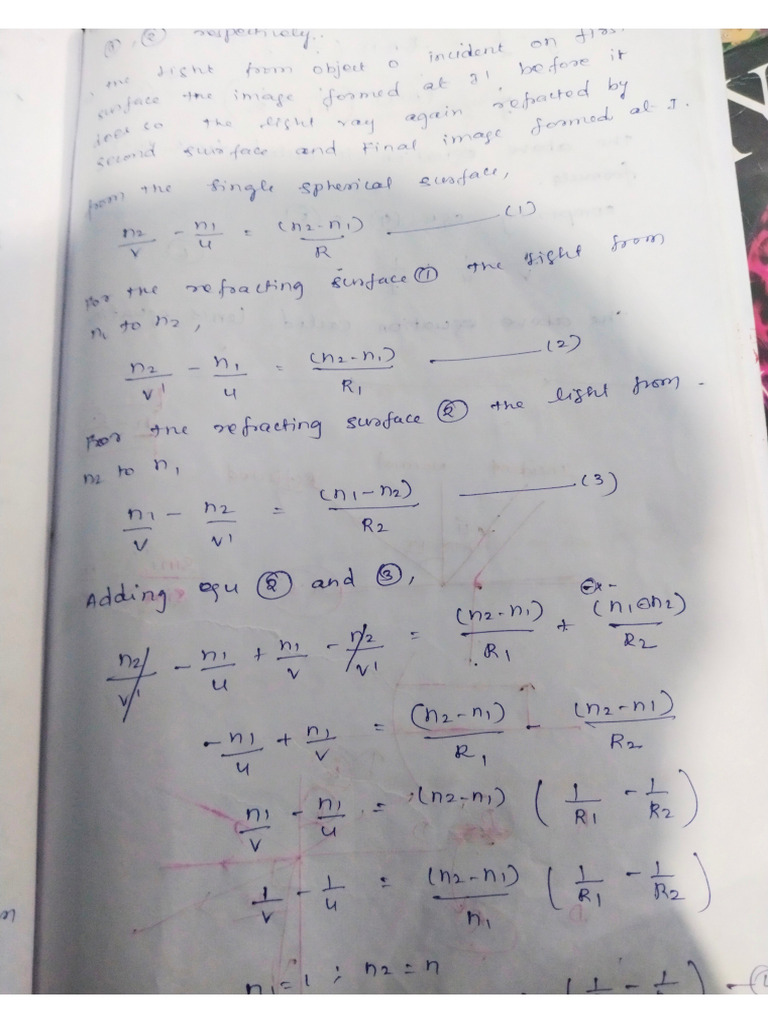 ①, ② respectively..
the light from object O incident on first
surface the image formed at I' before it
does so the light ray again refracted by
second surface and final image formed at I.
from the single spherical surface,
n2/v - n1/u = (n2-n1)/R ——— (1)
For the refracting surface ① the light from
n1 to n2,
n2/v' - n1/u = (n2-n1)/R1 ——— (2)
For the refracting surface ② the light from.
n2 to n1
n1/v - n2/v' = (n1-n2)/R2 ——— (3)
Adding equ ② and ③,
n2/v' - n1/u + n1/v - n2/v' = (n2-n1)/R1 + (n1-n2)/R2
-n1/u + n1/v = (n2-n1)/R1 - (n2-n1)/R2
n1/v - n1/u = (n2-n1) (1/R1 - 1/R2)
1/v - 1/u = (n2-n1)/n1 (1/R1 - 1/R2)
n1=1 ; n2=n